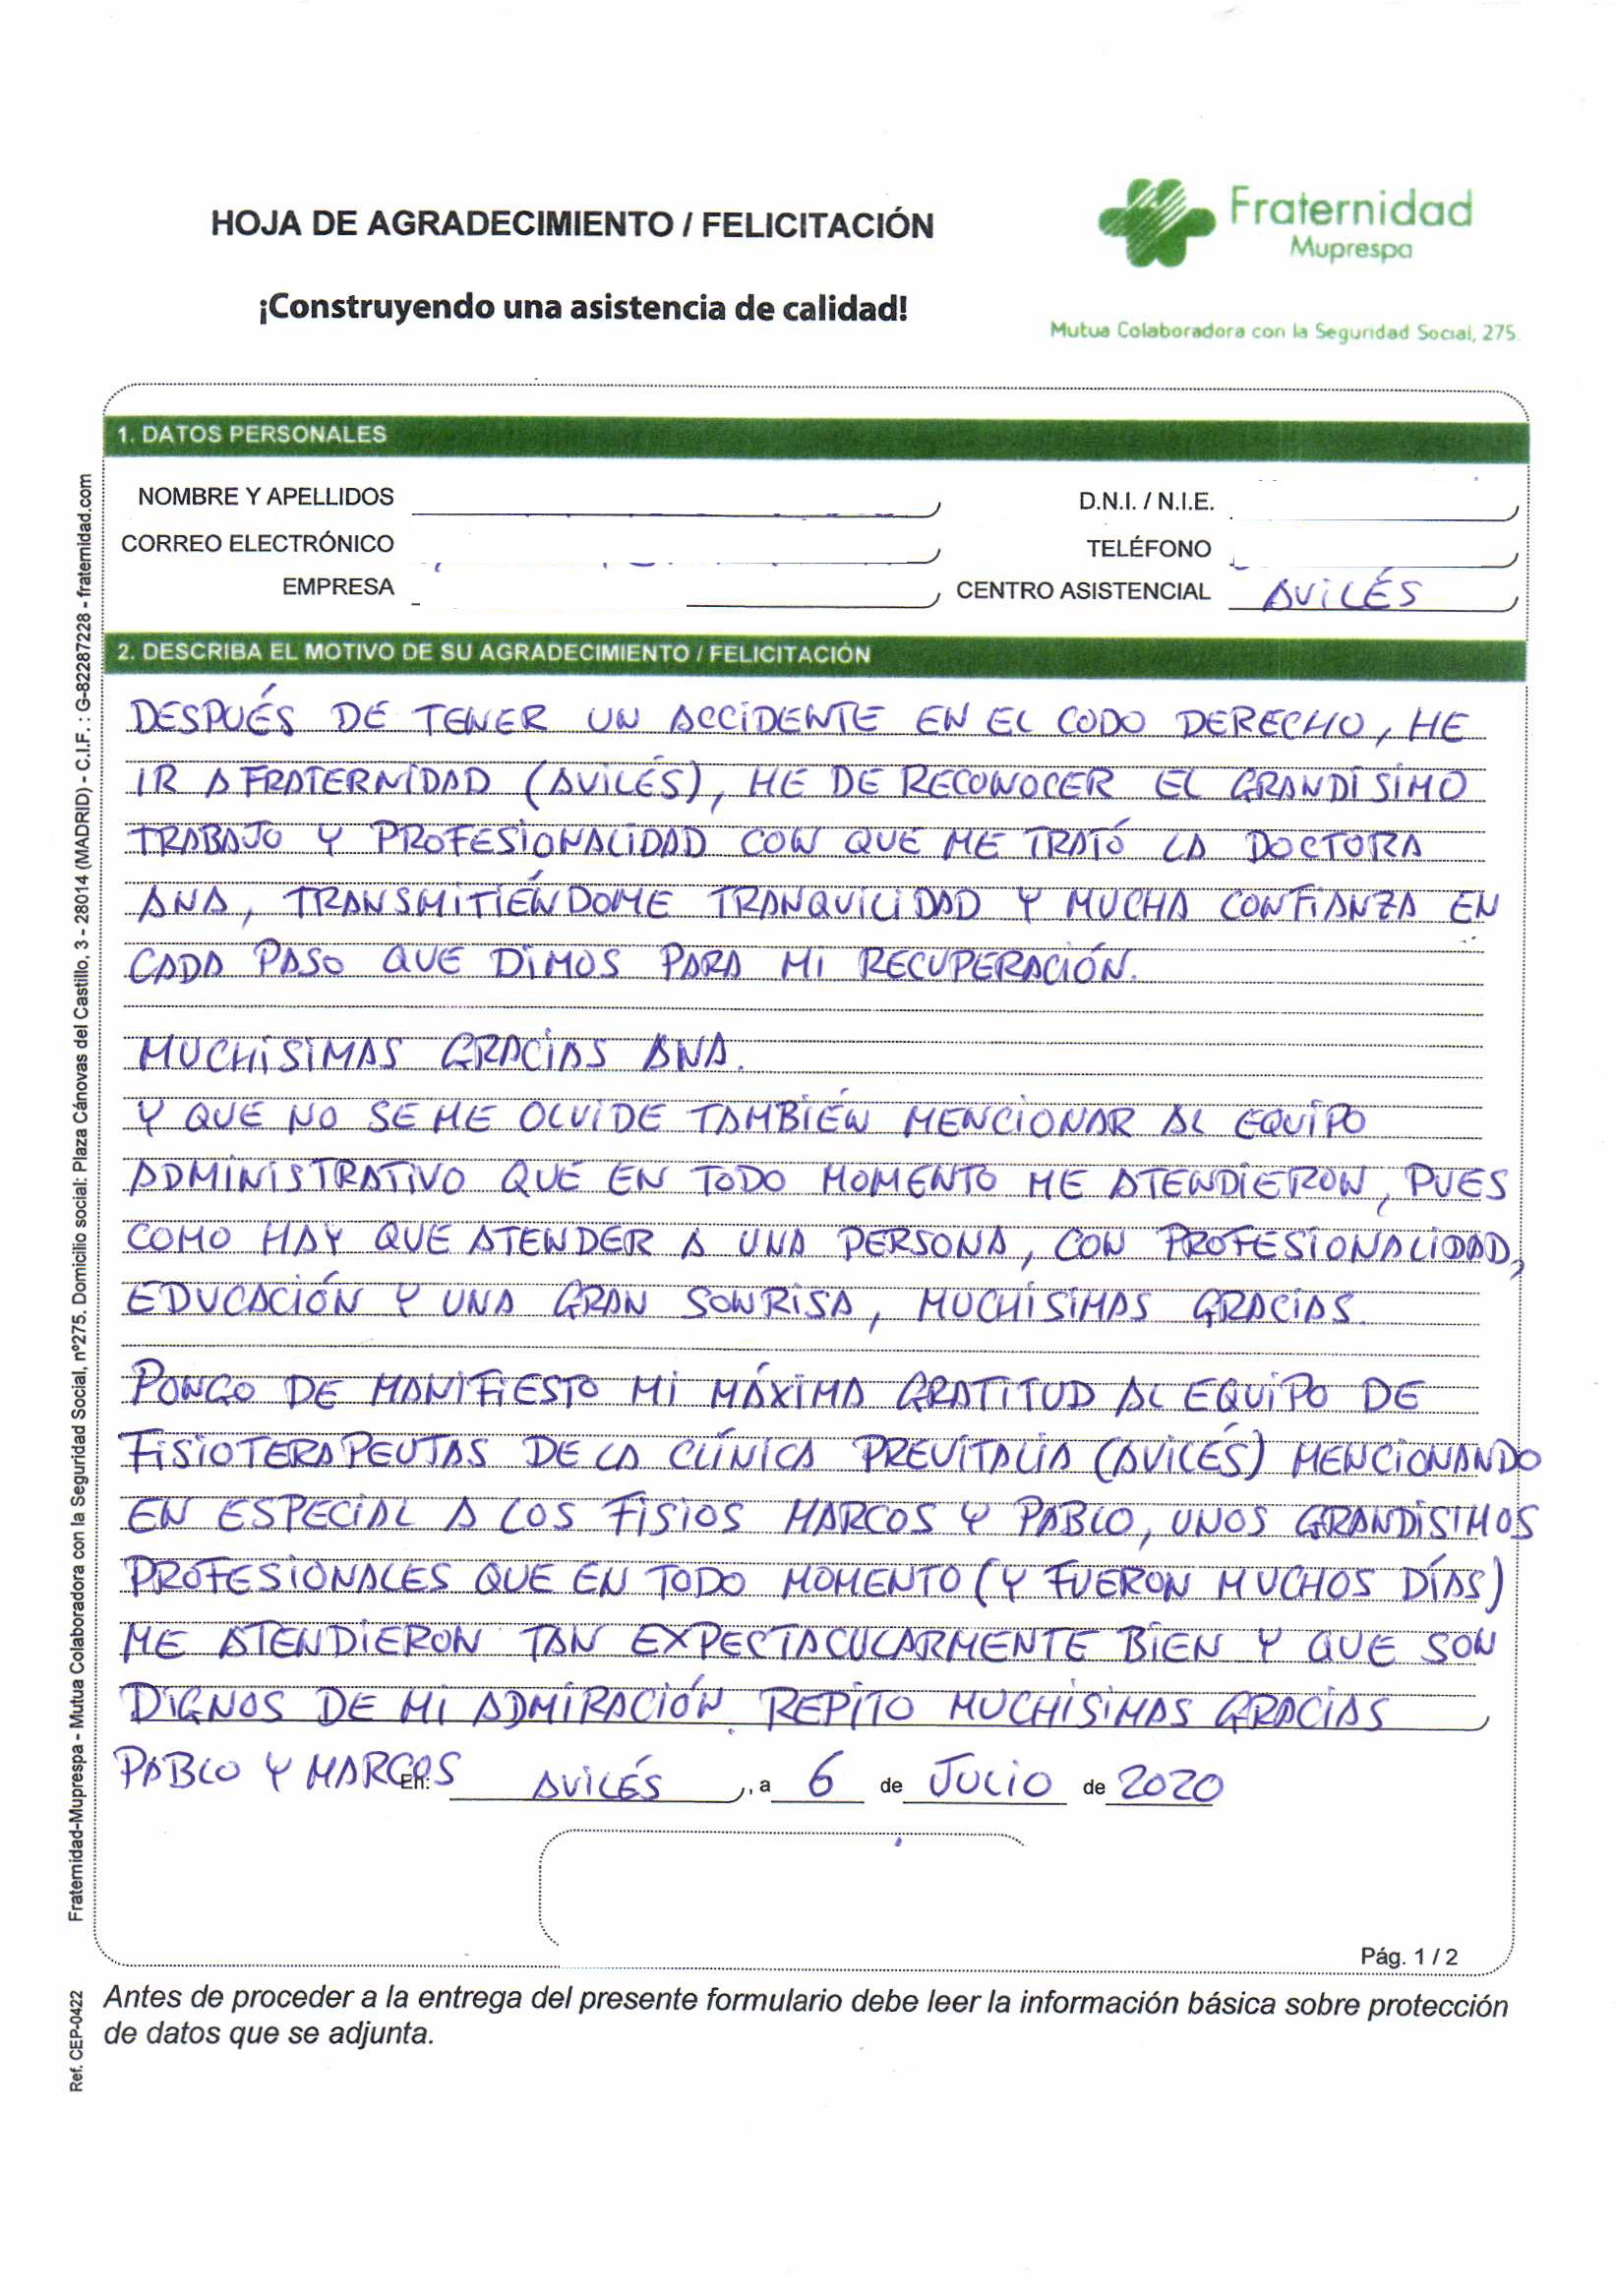 HOJA DE AGRADECIMIENTO / FELICITACIÓN
¡Construyendo una asistencia de calidad!
Fraternidad
Muprespa
Mutua Colaboradora con la Seguridad Social, 275.
1. DATOS PERSONALES
NOMBRE Y APELLIDOS
D.N.I. / N.I.E.
CORREO ELECTRÓNICO
TELÉFONO
EMPRESA
CENTRO ASISTENCIAL AVILÉS
2. DESCRIBA EL MOTIVO DE SU AGRADECIMIENTO / FELICITACIÓN
DESPUÉS DE TENER UN ACCIDENTE EN EL CODO DERECHO, HE
IR A FRATERNIDAD (AVILÉS), HE DE RECONOCER EL GRANDÍSIMO
TRABAJO Y PROFESIONALIDAD CON QUE ME TRATÓ LA DOCTORA
ANA, TRANSMITIÉNDOME TRANQUILIDAD Y MUCHA CONFIANZA EN
CADA PASO QUE DIMOS PARA MI RECUPERACIÓN.
MUCHÍSIMAS GRACIAS ANA.
Y QUE NO SE ME OLVIDE TAMBIÉN MENCIONAR AL EQUIPO
ADMINISTRATIVO QUE EN TODO MOMENTO ME ATENDIERON, PUES
COMO HAY QUE ATENDER A UNA PERSONA, CON PROFESIONALIDAD,
EDUCACIÓN Y UNA GRAN SONRISA, MUCHÍSIMAS GRACIAS.
PONGO DE MANIFIESTO MI MÁXIMA GRATITUD AL EQUIPO DE
FISIOTERAPEUTAS DE LA CLÍNICA PREVITALIA (AVILÉS) MENCIONANDO
EN ESPECIAL A LOS FISIOS MARCOS Y PABLO, UNOS GRANDÍSIMOS
PROFESIONALES QUE EN TODO MOMENTO (Y FUERON MUCHOS DÍAS)
ME ATENDIERON TAN EXPECTACULARMENTE BIEN Y QUE SON
DIGNOS DE MI ADMIRACIÓN. REPITO MUCHÍSIMAS GRACIAS
PABLO Y MARCOS
En: AVILÉS, a 6 de JULIO de 2020
Pág. 1 / 2
Antes de proceder a la entrega del presente formulario debe leer la información básica sobre protección
de datos que se adjunta.
Fraternidad-Muprespa - Mutua Colaboradora con la Seguridad Social, nº275. Domicilio social: Plaza Cánovas del Castillo, 3 - 28014 (MADRID) - C.I.F. : G-82287228 - fraternidad.com
Ref. CEP-0422